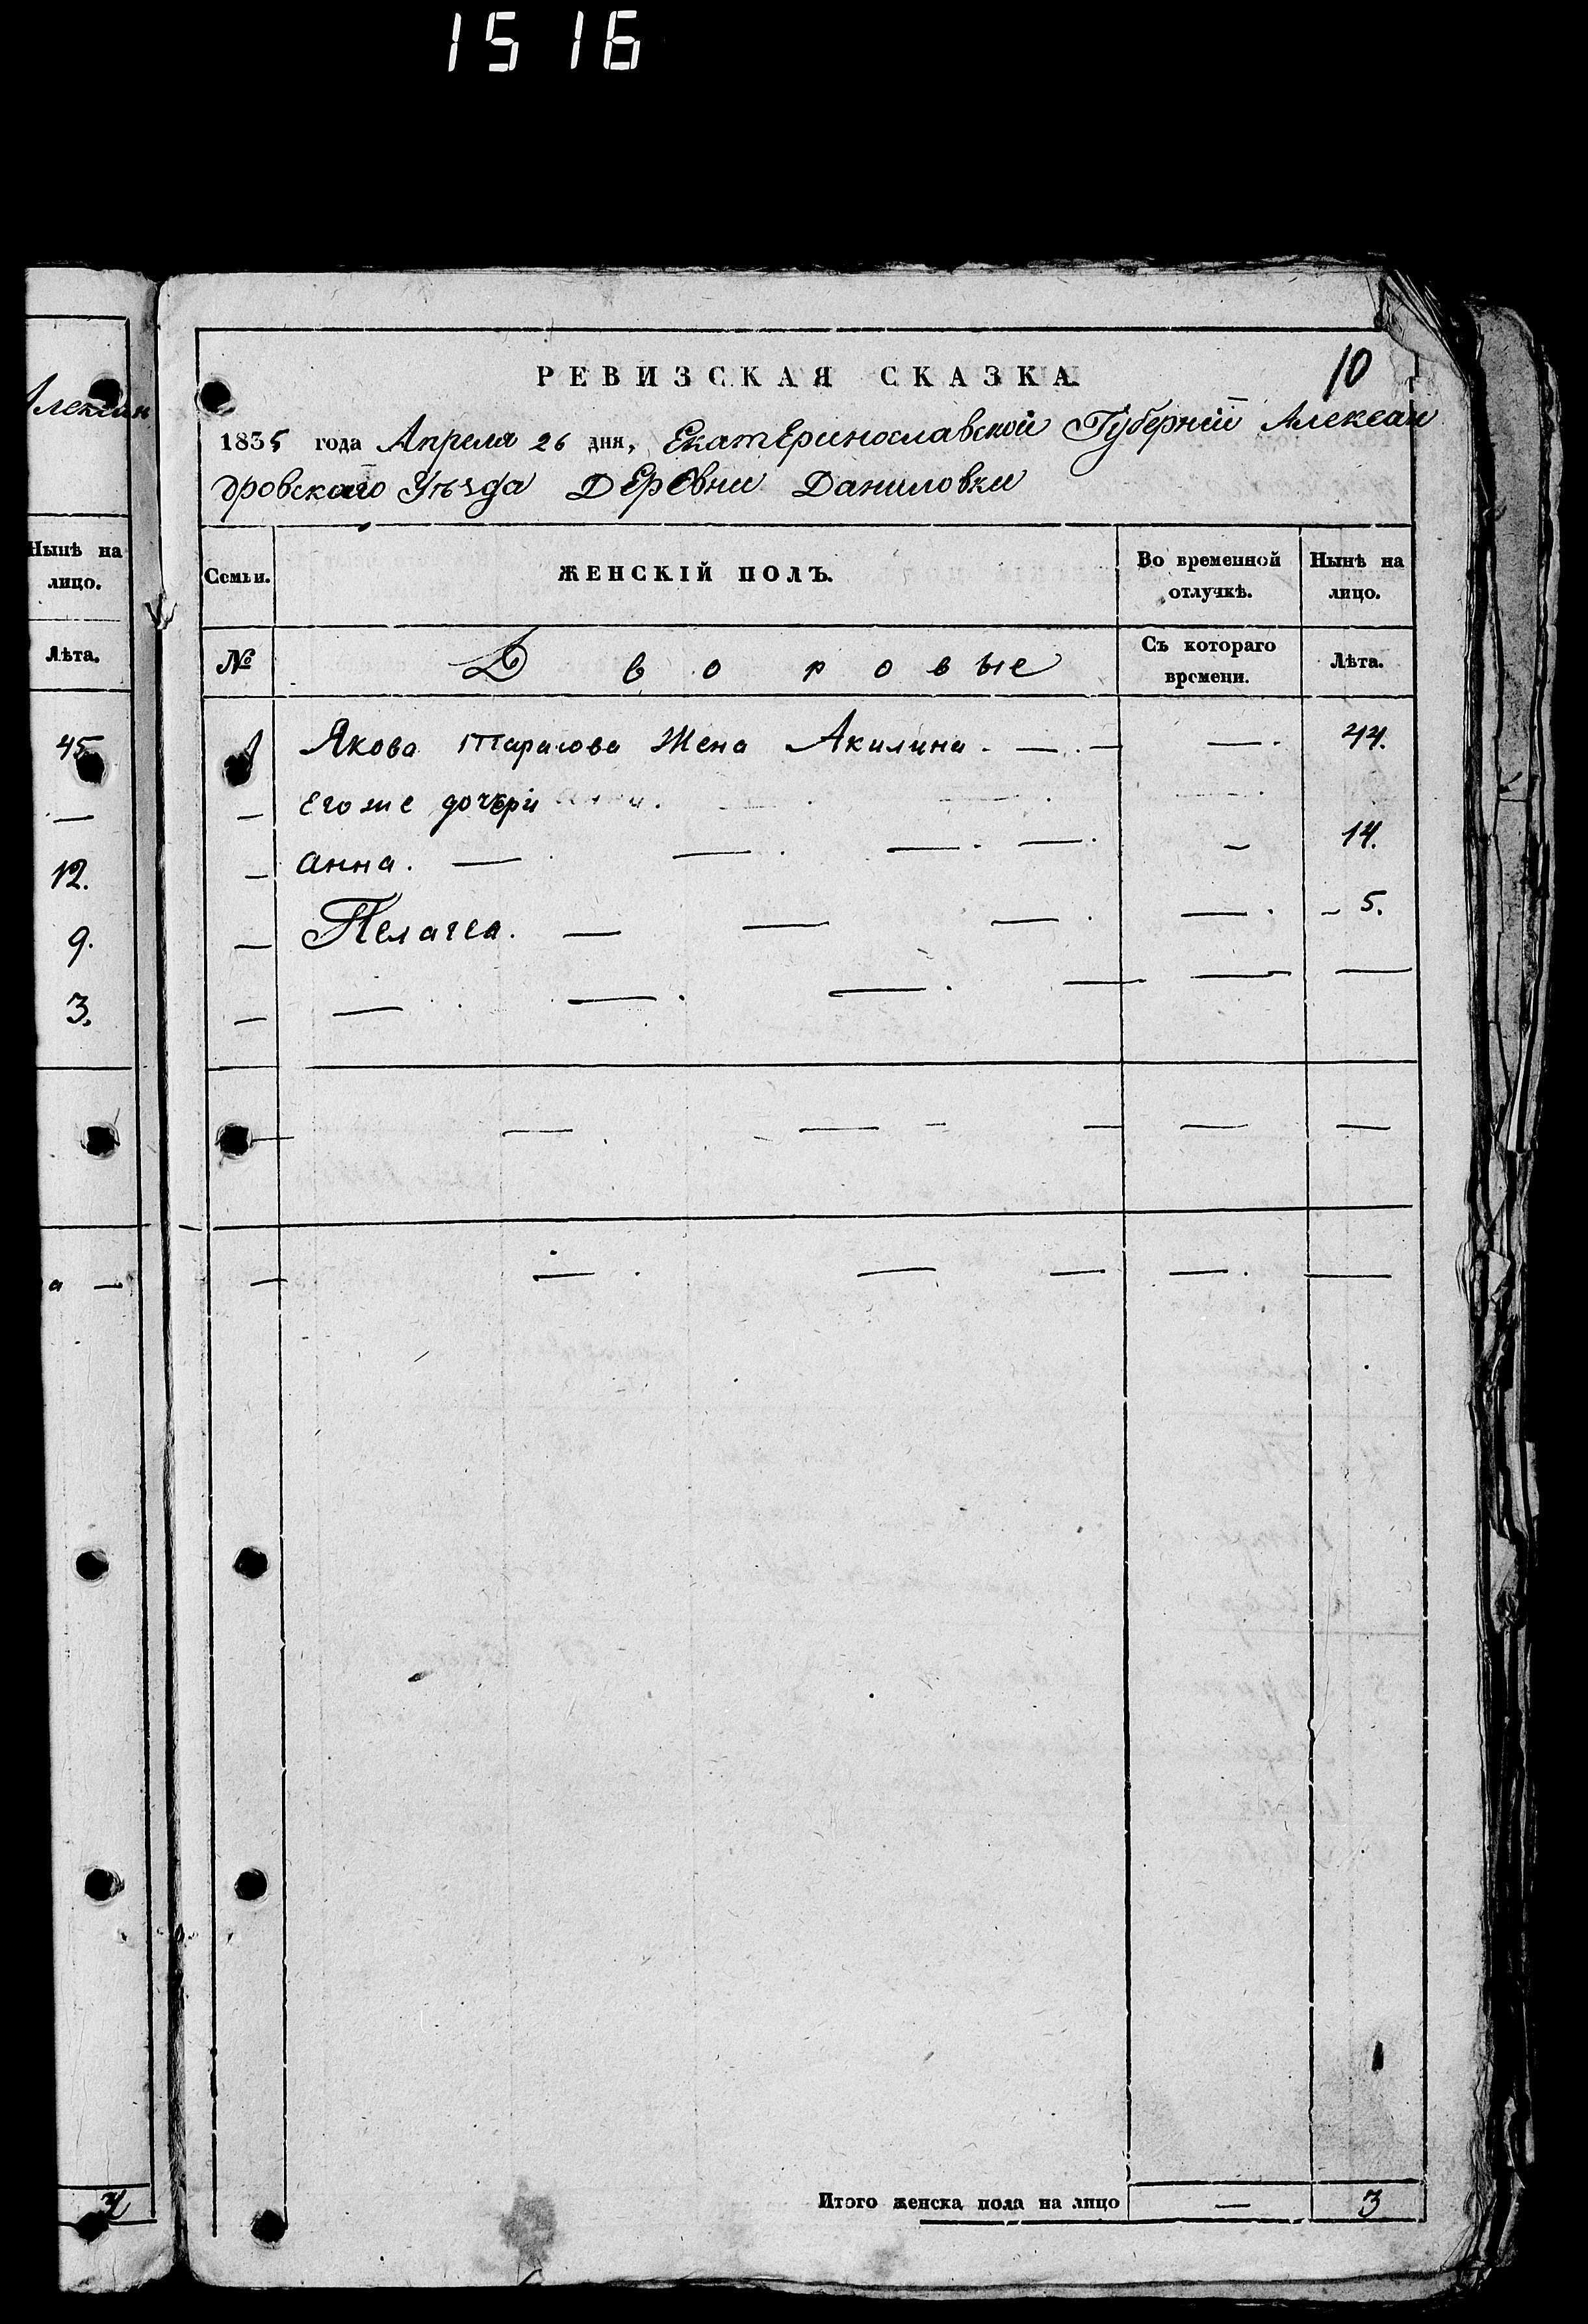 1516
Алексан
Нынѣ на
лицо.
Лѣта.
45
—
12.
9.
3.
а —
РЕВИЗСКАЯ СКАЗКА.
10
1835 года Апреля 26 дня, Екатеринославской Губерніи Алексан
дровскаго Уѣзда Деревни Даниловки
Семьи. ЖЕНСКІЙ ПОЛЪ. Во временной отлучкѣ. Нынѣ на лицо.
№ Дворовые Съ котораго времени. Лѣта.
1 Якова Тарасова Жена Акилина. — . — — . 44.
— Его же дочери
— анна. — . — . — . — . — 14.
— Пелагеа. — — — . — . – 5.
— — . — . — . — — —
— — . — - — — —
— — . — — — . —
Итого женска пола на лицо — 3